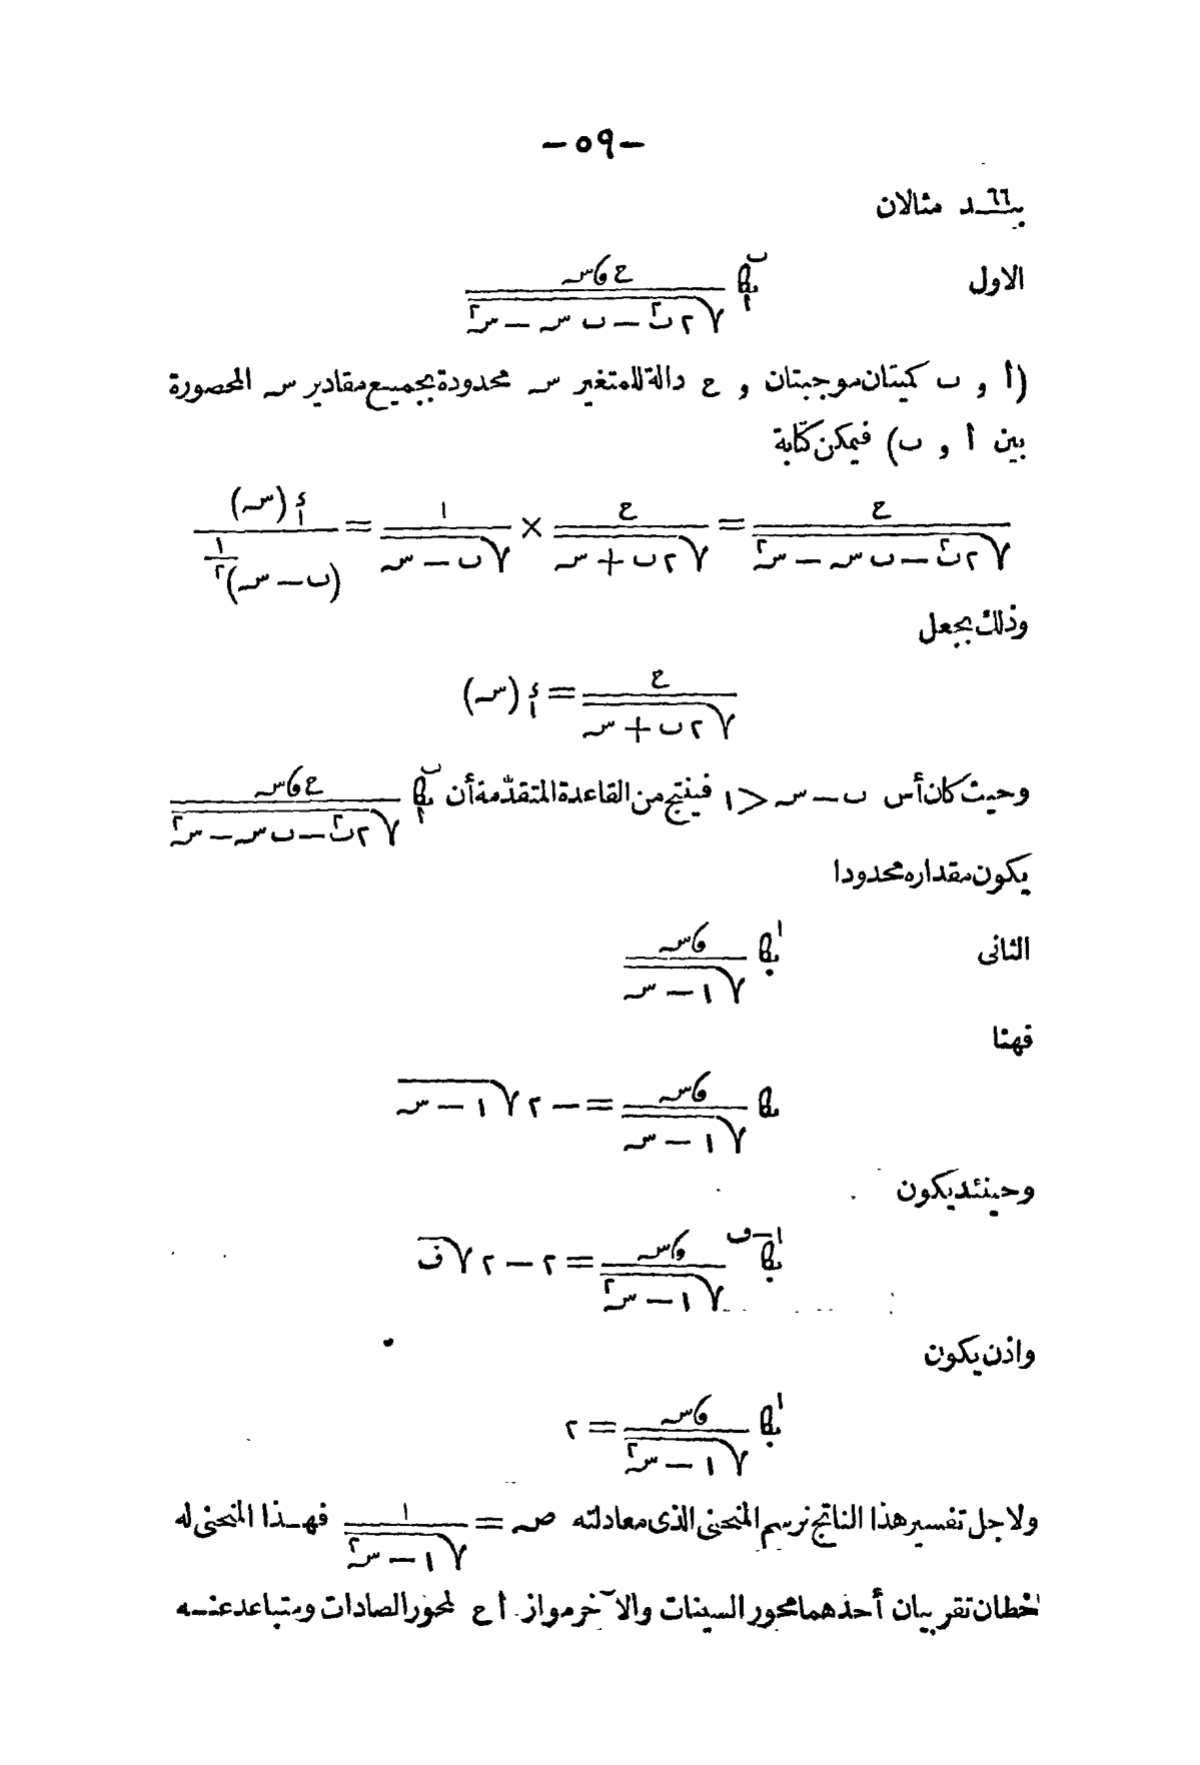 -٥٩-
بند ٦٦ مثالان
الاول ᷾ \int_{ا}^{ب} \frac{ع ءس}{\sqrt{٢ب^٢ - ب س - س^٢}}
(أ و ب كميتان موجبتان و ع دالة للمتغير س محدودة بجميع مقادير س المحصورة
بين أ و ب) فيمكن كتابة
\frac{ع}{\sqrt{٢ب^٢ - ب س - س^٢}} = \frac{ع}{\sqrt{٢ب + س}} × \frac{١}{\sqrt{ب - س}} = \frac{ئ_١ (س)}{(ب - س)^{\frac{١}{٢}}}
وذلك بجعل
\frac{ع}{\sqrt{٢ب + س}} = ئ_١ (س)
وحيث كان أس ب - س < ١ فينتج من القاعدة المتقدّمة أن \int_{ا}^{ب} \frac{ع ءس}{\sqrt{٢ب^٢ - ب س - س^٢}}
يكون مقداره محدودا
الثانى \int_{٠}^{١} \frac{ءس}{\sqrt{١ - س}}
فهنا
\int \frac{ءس}{\sqrt{١ - س}} = - ٢\sqrt{١ - س}
وحينئذ يكون
\int_{٠}^{١-ف} \frac{ءس}{\sqrt{١ - س^٢}} = ٢ - ٢\sqrt{ف}
واذن يكون
\int_{٠}^{١} \frac{ءس}{\sqrt{١ - س^٢}} = ٢
ولاجل تفسير هذا الناتج نرسم المنحنى الذى معادلته ص = \frac{١}{\sqrt{١ - س^٢}} فهذا المنحنى له
خطان تقربيان أحدهما محور السينات والآخر مواز أ ع لمحور الصادات ومتباعد عنه